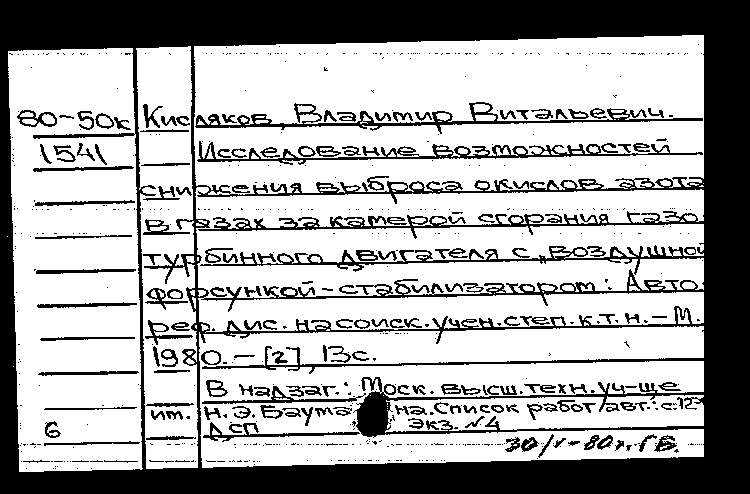 80-50к Кисляков, Владимир Витальевич.
1541 Исследование возможностей
снижения выброса окислов азота
в газах за камерой сгорания газо-
турбинного двигателя с „воздушной
форсункой-стабилизатором: Авто-
реф. дис. на соиск. учен. степ. к.т.н. - М.,
1980. - [2], 13с.
В надзаг.: Моск. высш. техн. уч-ще
им. Н.Э. Баумана. Список работ авт.: с.12
6 ДСП Экз. №4
30/V-80г. ГБ.